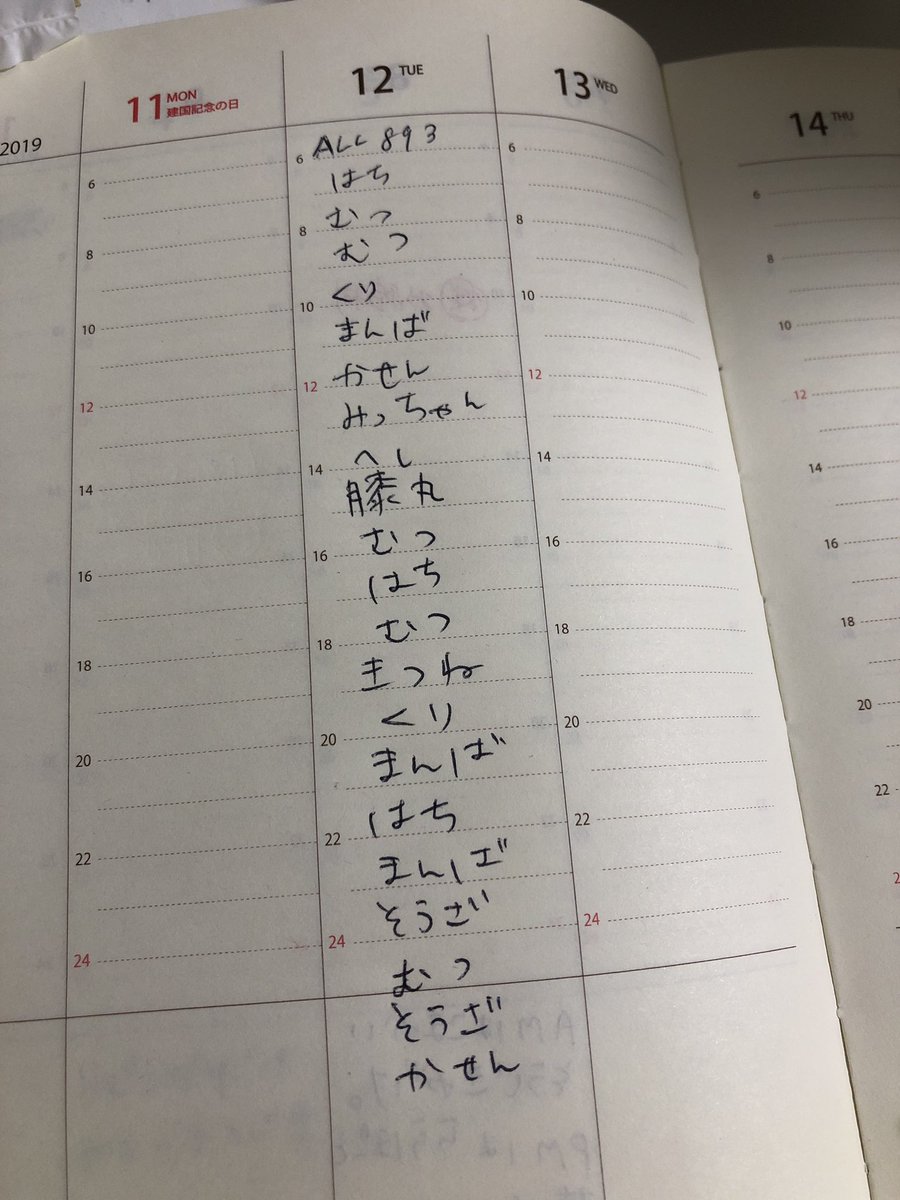 2019
11 MON
建国記念の日
6
8
10
12
14
16
18
20
22
24
12 TUE
6 ALL 893
はち
8 むつ
むつ
くり
10
まんば
12 かせん
みっちゃん
14 へし
膝丸
むつ
16
はち
むつ
18
きつね
くり
20
まんば
はち
22
まんば
そうざ
24
むつ
そうざ
かせん
13 WED
6
8
10
12
14
16
18
20
22
24
14 THU
6
8
10
12
14
16
18
20
22